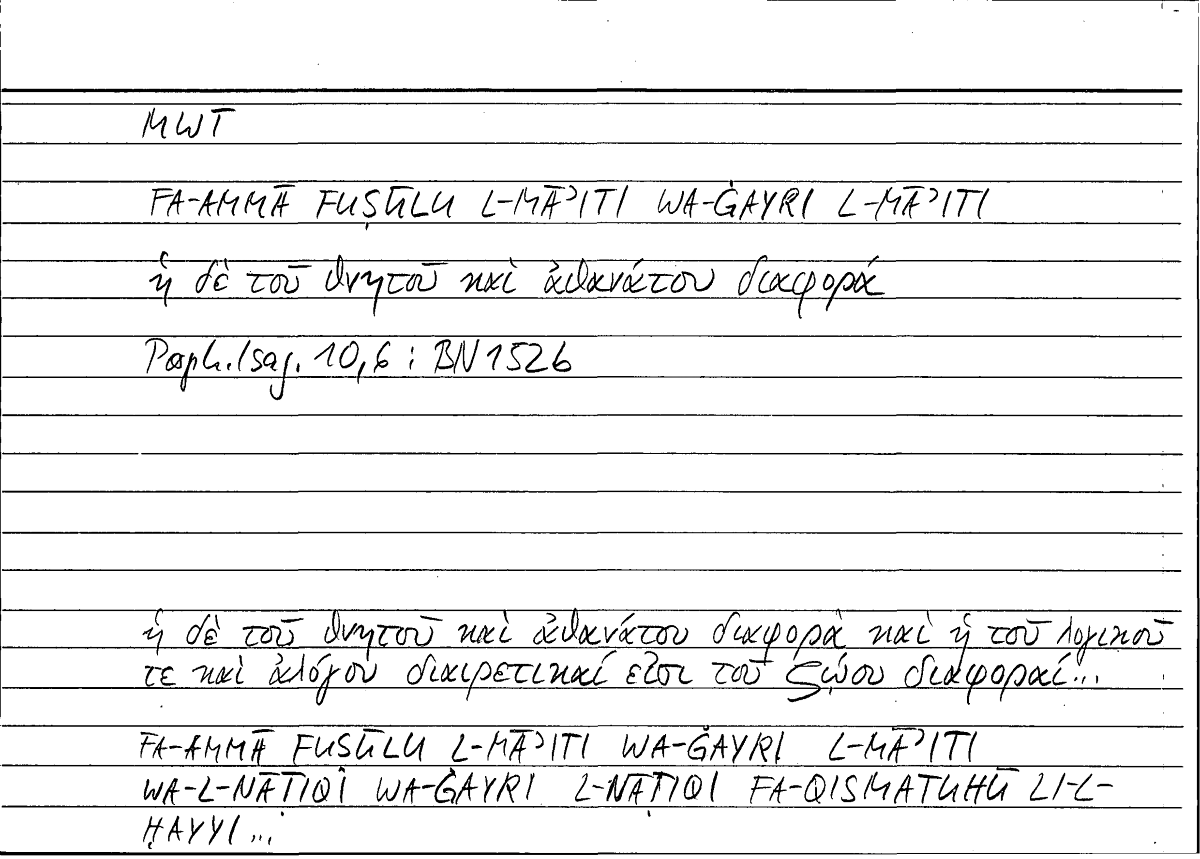 MWT
FA-AMMĀ FUṢŪLU L-MĀʾITI WA-ĠAYRI L-MĀʾITI
ἡ δὲ τοῦ θνητοῦ καὶ ἀθανάτου διαφορά
Porph. Isag. 10,6 : BN 152b
ἡ δὲ τοῦ θνητοῦ καὶ ἀθανάτου διαφορὰ καὶ ἡ τοῦ λογικοῦ
τε καὶ ἀλόγου διαιρετικαί εἰσι τοῦ ζῴου διαφοραί...
FA-AMMĀ FUSŪLU L-MĀʾITI WA-ĠAYRI L-MĀʾITI
WA-L-NĀṬIQI WA-ĠAYRI L-NĀṬIQI FA-QISMATUHŪ LI-L-
ḤAYYI...